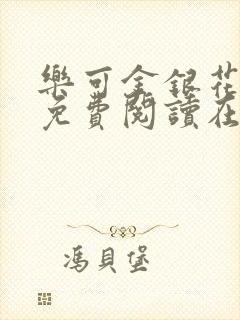 樂可金銀花
免費閱讀在
馮貝堡